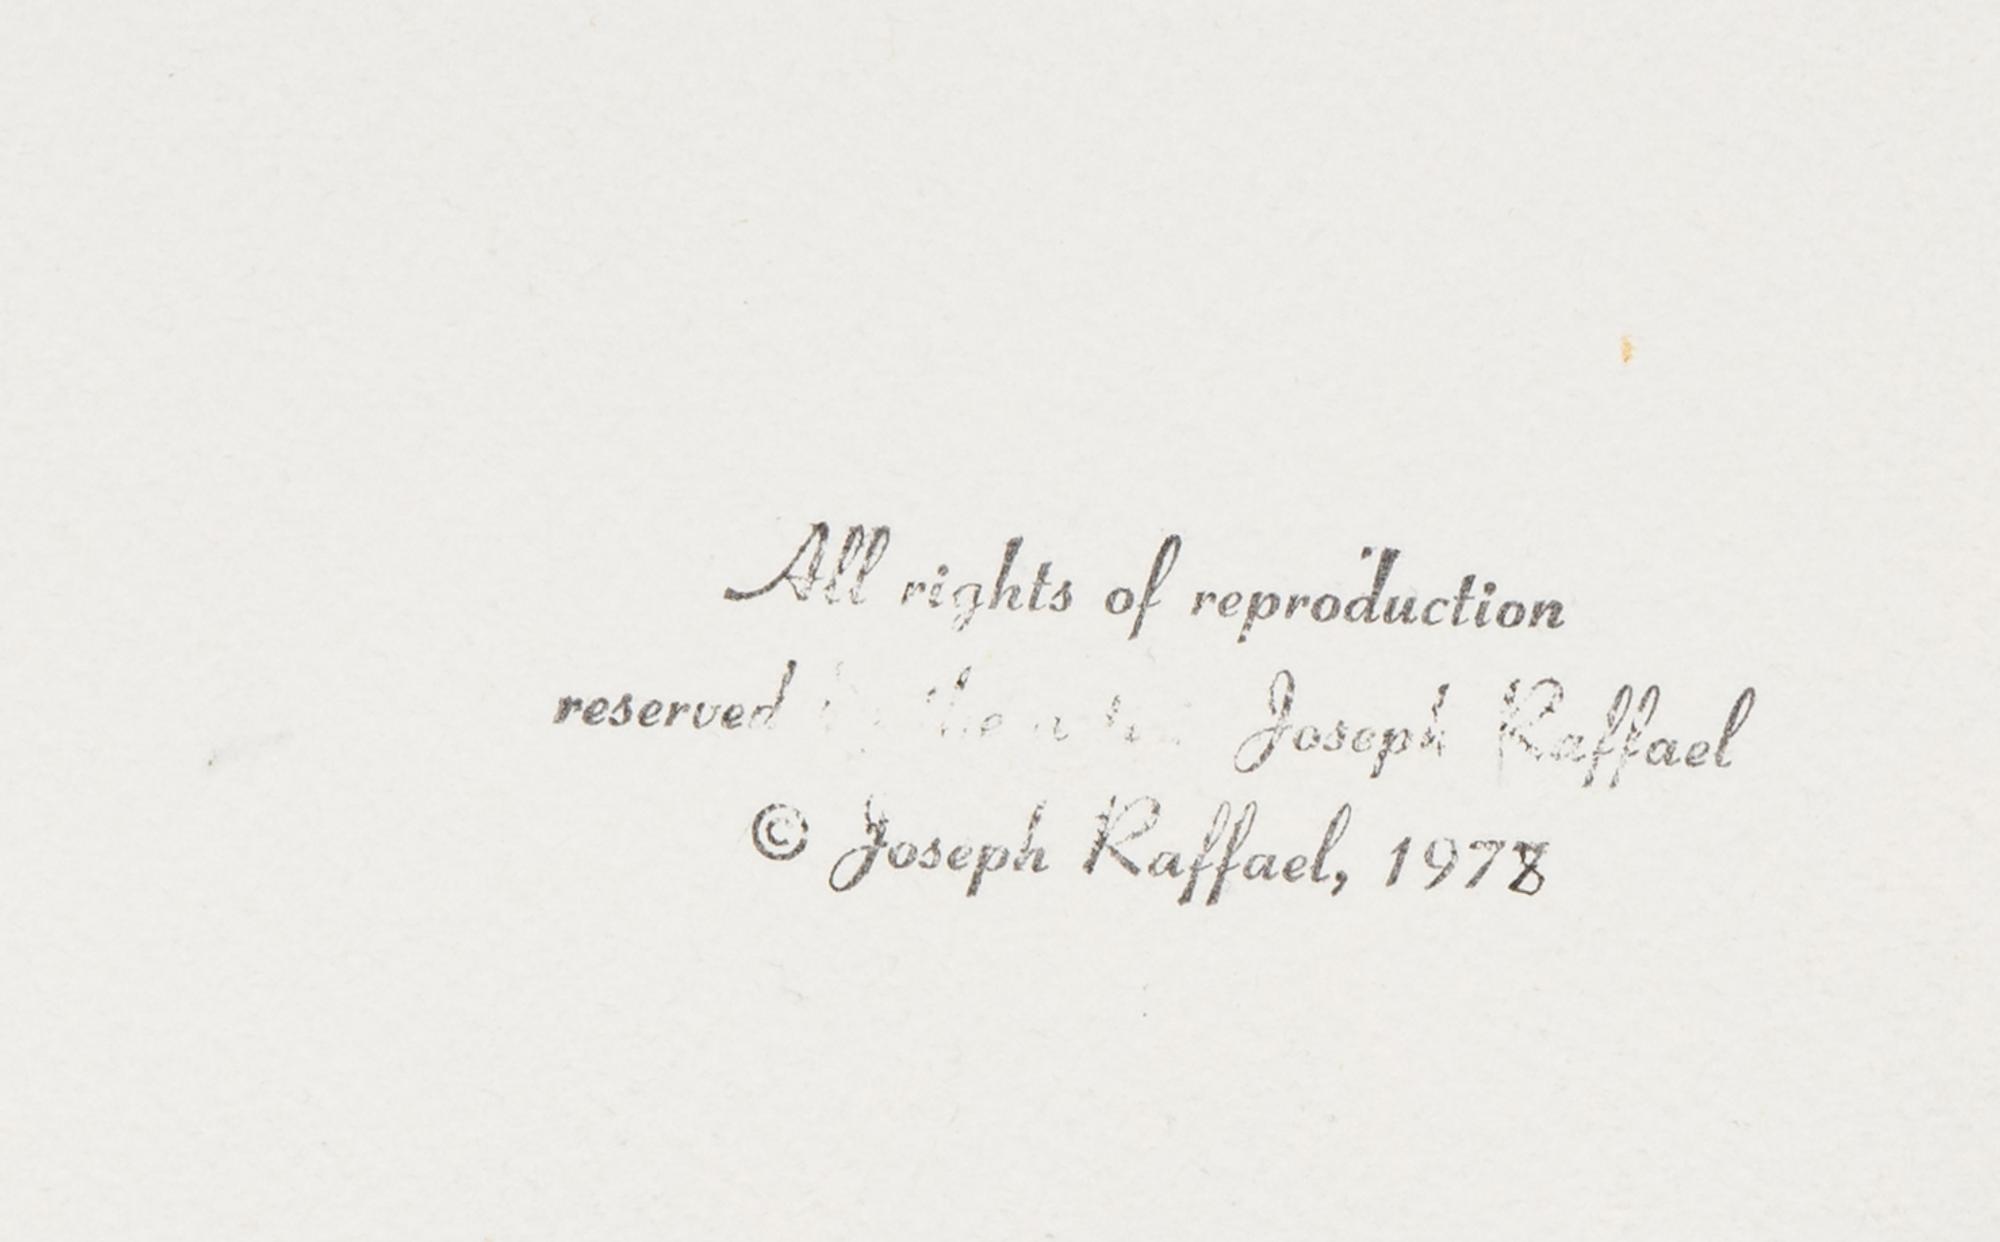 All rights of reproduction
reserved the Joseph Raffael
© Joseph Raffael, 1978